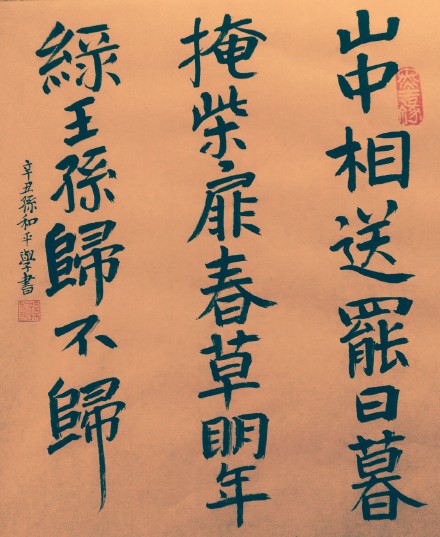 山中相送罷日暮
掩柴扉春草明年
綠王孫歸不歸
辛丑孫和平學書